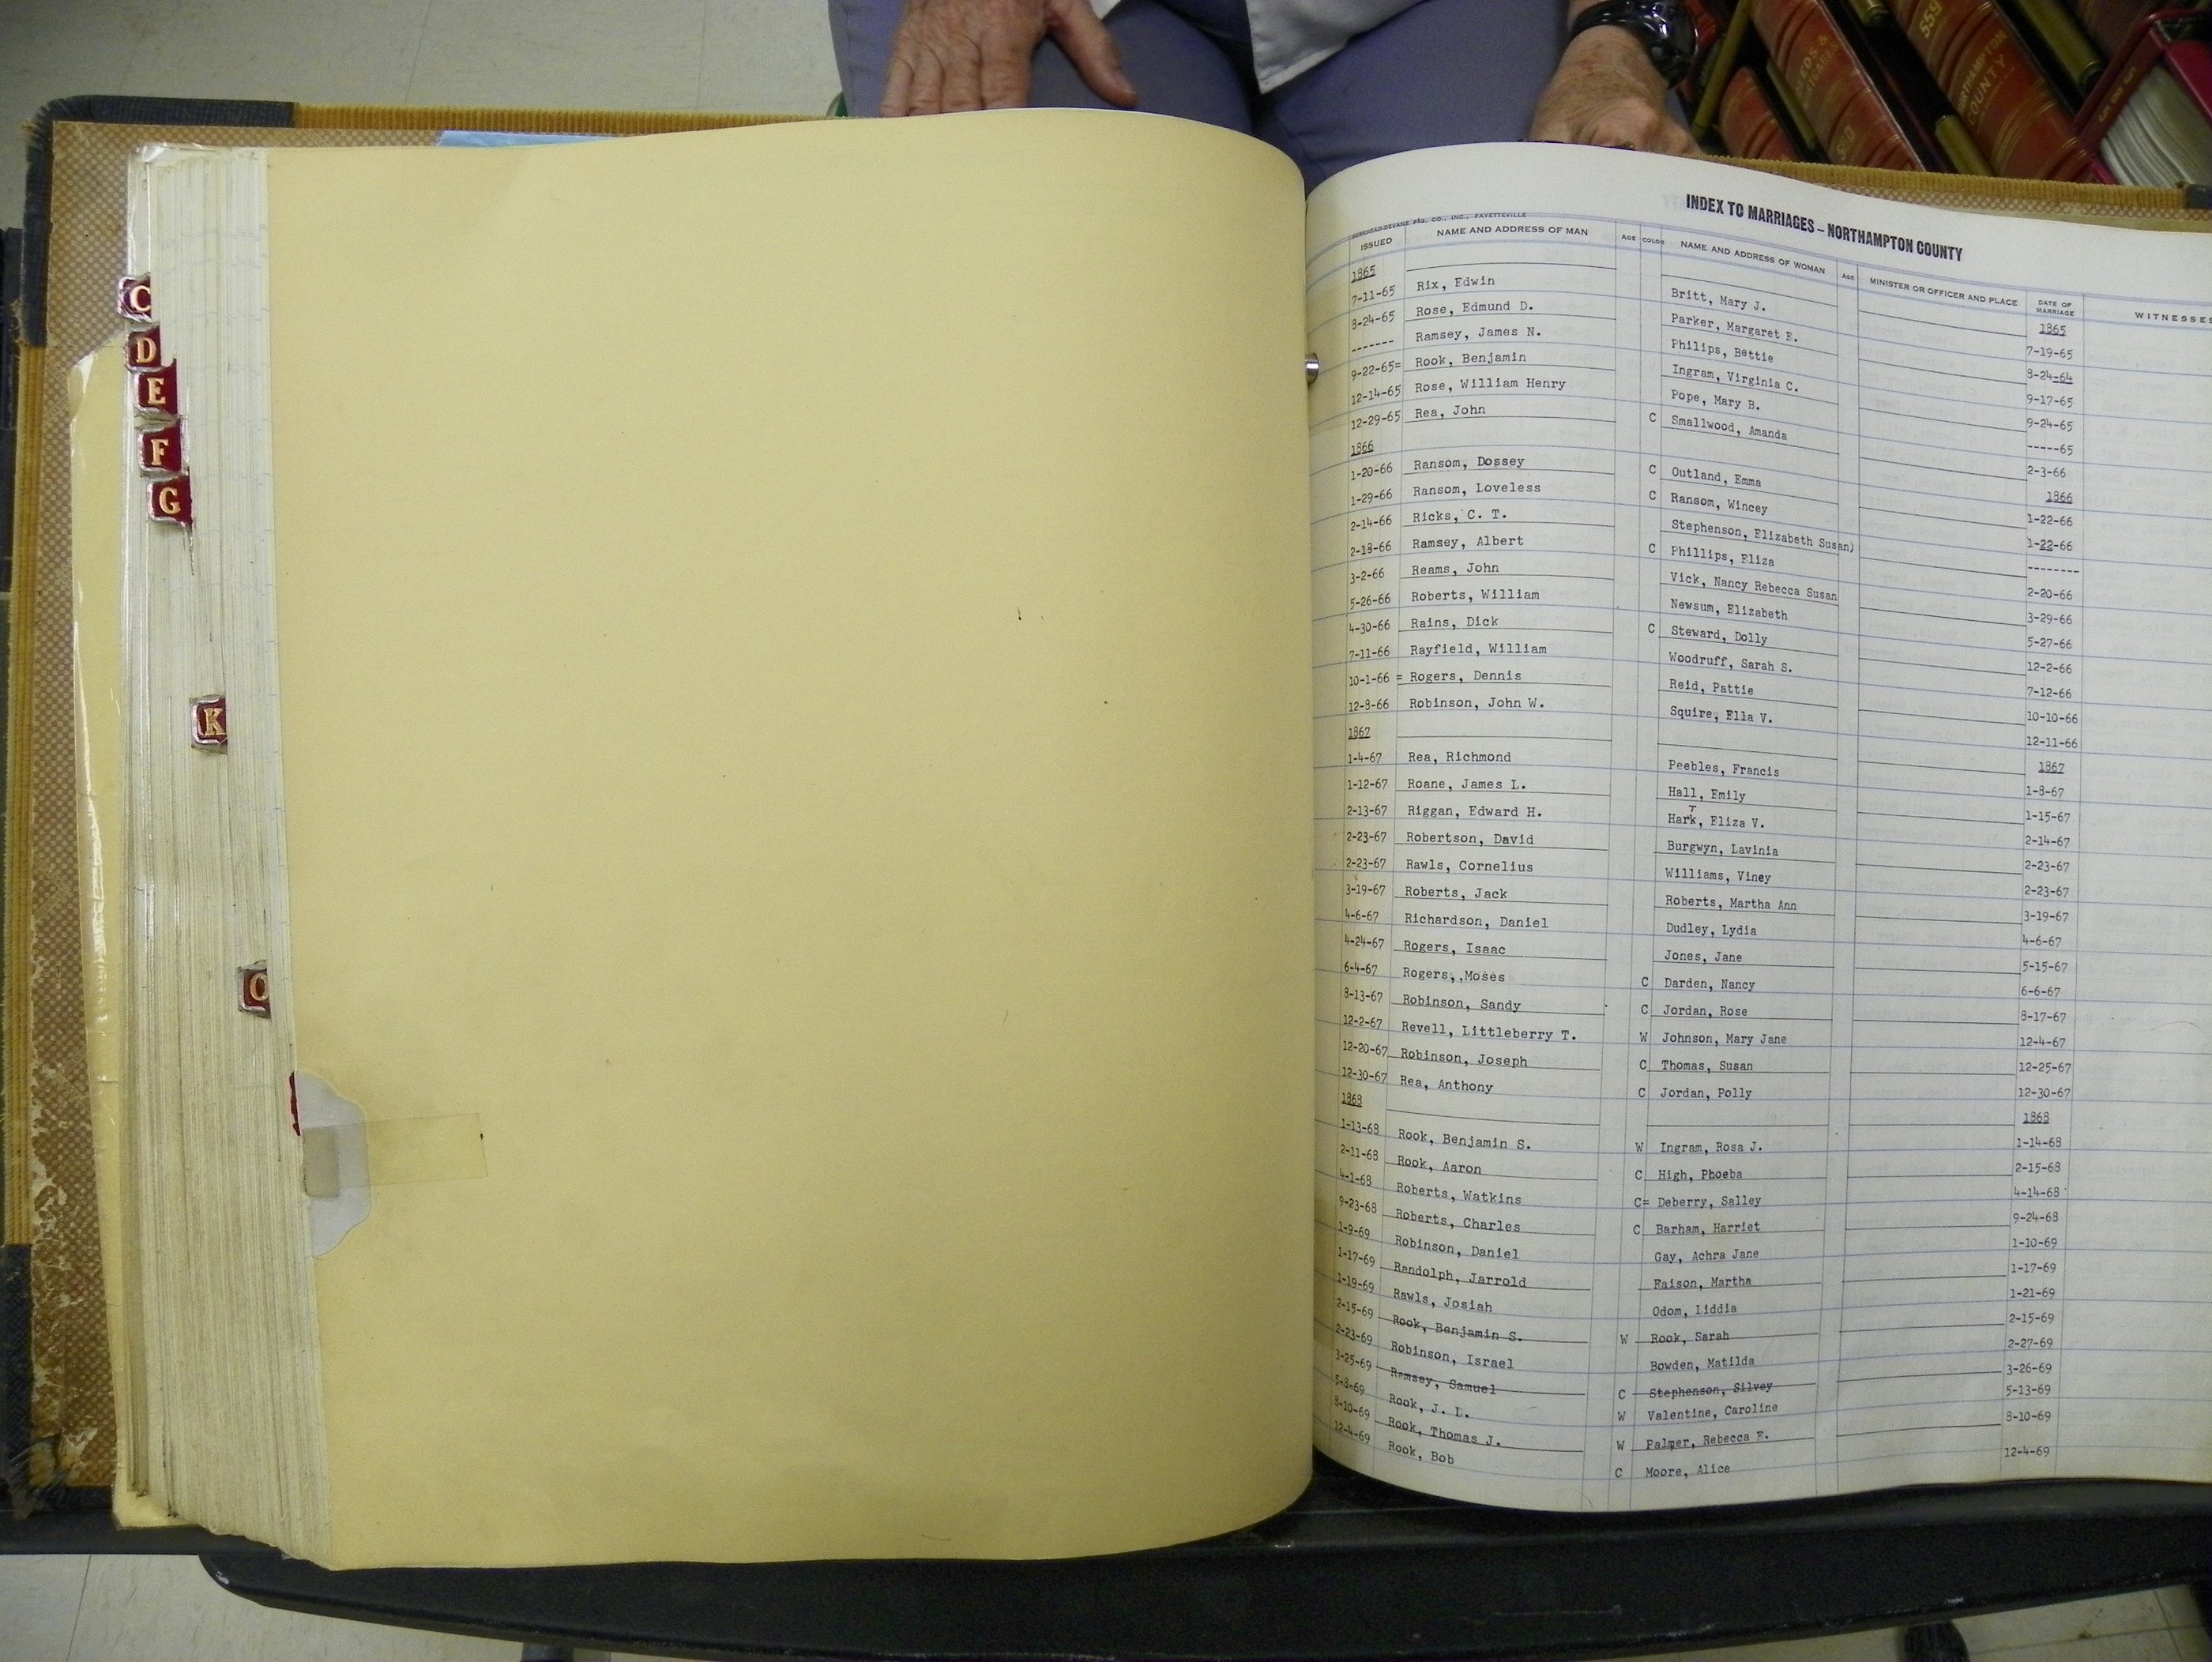 C
D
E
F
G
K
O
DEEDS &
580
559
NORTHAMPTON
COUNTY
INDEX TO MARRIAGES – NORTHAMPTON COUNTY
CO., INC., FAYETTEVILLE
ISSUED NAME AND ADDRESS OF MAN AGE COLOR NAME AND ADDRESS OF WOMAN AGE MINISTER OR OFFICER AND PLACE DATE OF MARRIAGE WITNESSES
1865 1865
7-11-65 Rix, Edwin Britt, Mary J. 7-19-65
8-24-65 Rose, Edmund D. Parker, Margaret E. 8-24-64
------- Ramsey, James N. Philips, Bettie 9-17-65
9-22-65= Rook, Benjamin Ingram, Virginia C. 9-24-65
12-14-65 Rose, William Henry Pope, Mary B. -----65
12-29-65 Rea, John C Smallwood, Amanda 2-3-66
1866 1866
1-20-66 Ransom, Dossey C Outland, Emma 1-22-66
1-29-66 Ransom, Loveless C Ransom, Wincey 1-22-66
2-14-66 Ricks, C. T. Stephenson, Elizabeth Susan) --------
2-18-66 Ramsey, Albert C Phillips, Eliza 2-20-66
3-2-66 Reams, John Vick, Nancy Rebecca Susan 3-29-66
5-26-66 Roberts, William Newsum, Elizabeth 5-27-66
4-30-66 Rains, Dick C Steward, Dolly 12-2-66
7-11-66 Rayfield, William Woodruff, Sarah S. 7-12-66
10-1-66 = Rogers, Dennis Reid, Pattie 10-10-66
12-8-66 Robinson, John W. Squire, Ella V. 12-11-66
1867 1867
1-4-67 Rea, Richmond Peebles, Francis 1-8-67
1-12-67 Roane, James L. Hall, Emily 1-15-67
T
2-13-67 Riggan, Edward H. Hark, Eliza V. 2-14-67
2-23-67 Robertson, David Burgwyn, Lavinia 2-23-67
2-23-67 Rawls, Cornelius Williams, Viney 2-23-67
3-19-67 Roberts, Jack Roberts, Martha Ann 3-19-67
4-6-67 Richardson, Daniel Dudley, Lydia 4-6-67
4-24-67 Rogers, Isaac Jones, Jane 5-15-67
6-4-67 Rogers, Moses C Darden, Nancy 6-6-67
8-13-67 Robinson, Sandy C Jordan, Rose 8-17-67
12-2-67 Revell, Littleberry T. W Johnson, Mary Jane 12-4-67
12-20-67 Robinson, Joseph C Thomas, Susan 12-25-67
12-30-67 Rea, Anthony C Jordan, Polly 12-30-67
1868 1868
1-13-68 Rook, Benjamin S. W Ingram, Rosa J. 1-14-68
2-11-68 Rook, Aaron C High, Phoeba 2-15-68
4-1-68 Roberts, Watkins C= Deberry, Salley 4-14-68
9-23-68 Roberts, Charles C Barham, Harriet 9-24-68
1-9-69 Robinson, Daniel Gay, Achra Jane 1-10-69
1-17-69 Randolph, Jarrold Faison, Martha 1-17-69
1-19-69 Rawls, Josiah Odom, Liddia 1-21-69
2-15-69 Rook, Benjamin S. W Rook, Sarah 2-15-69
2-23-69 Robinson, Israel Bowden, Matilda 2-27-69
3-25-69 Ramsey, Samuel C Stephenson, Silvey 3-26-69
5-8-69 Rook, J. L. W Valentine, Caroline 5-13-69
8-10-69 Rook, Thomas J. W Palmer, Rebecca F. 8-10-69
12-4-69 Rook, Bob C Moore, Alice 12-4-69